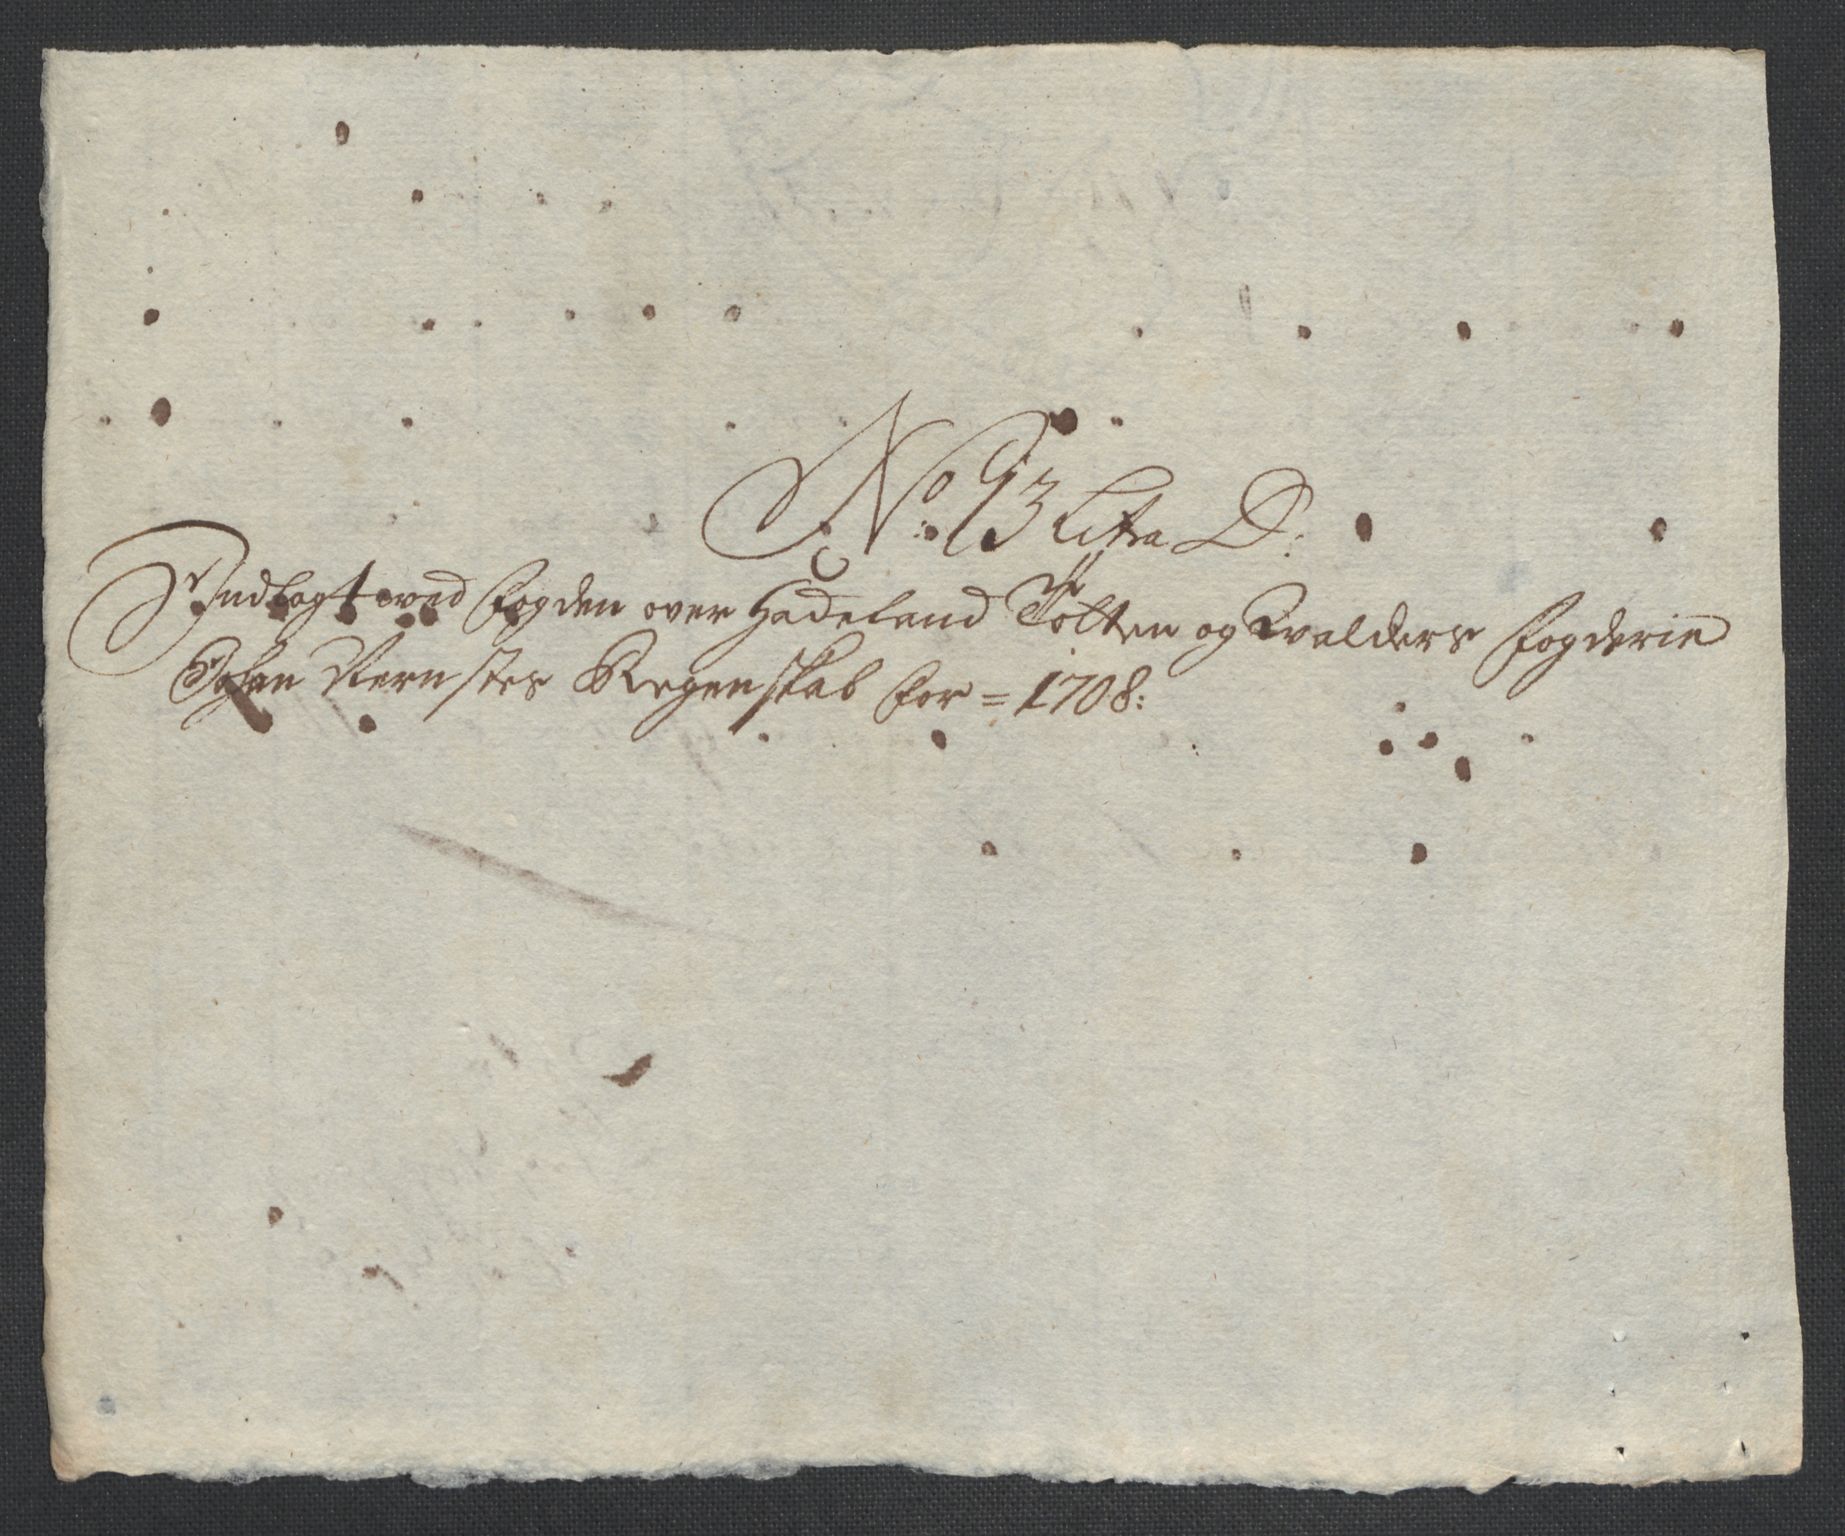 No: 13 Litra D:
Indlagt wed fogden over Hadeland Totten og Walders fogderie
Johan Vernstes Regenskab for = 1708: